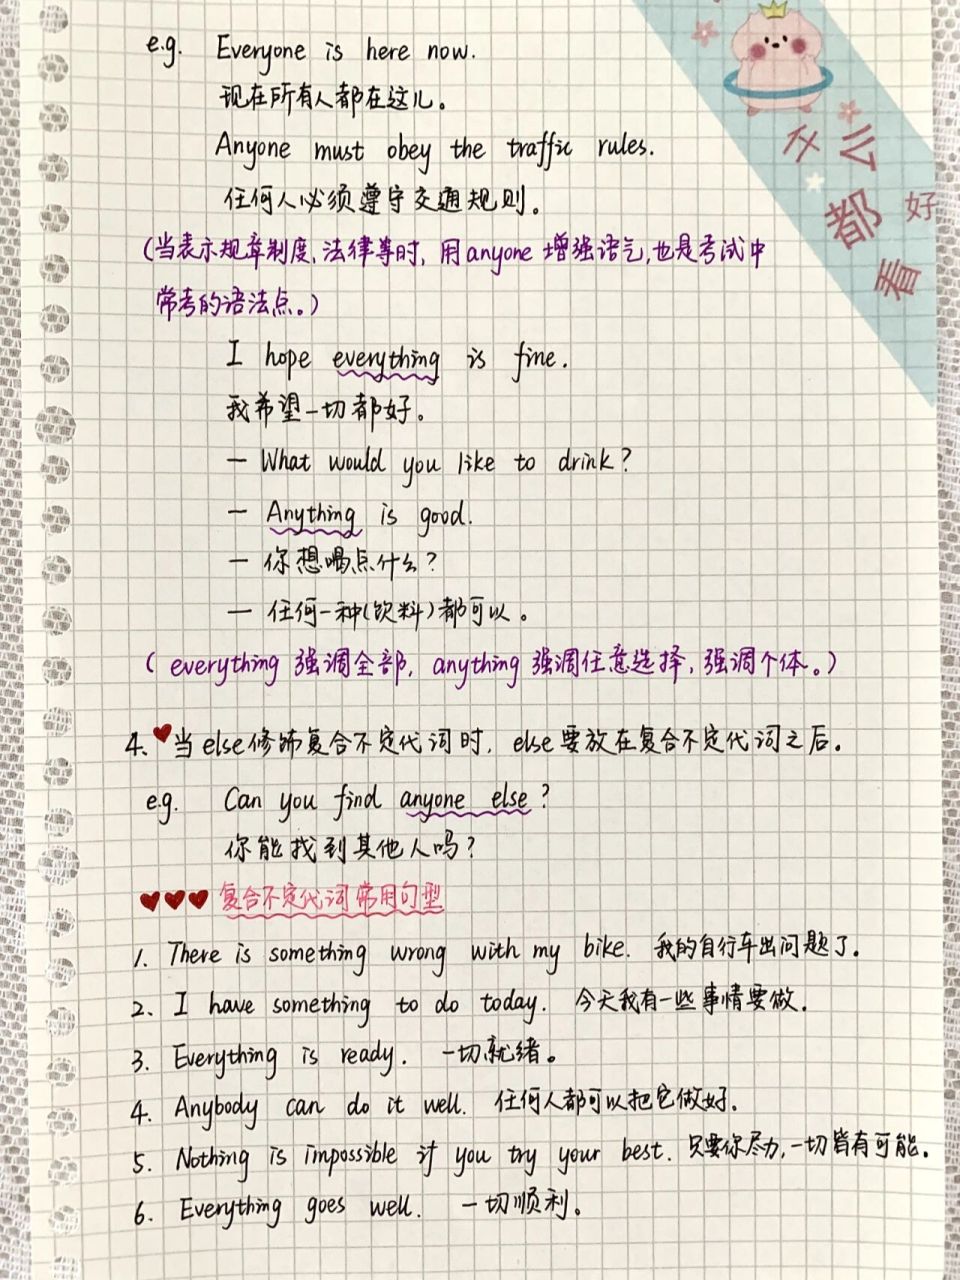 e.g. Everyone is here now.
现在所有人都在这儿。
Anyone must obey the traffic rules.
任何人必须遵守交通规则。
(当表示规章制度,法律等时,用anyone 增强语气,也是考试中
常考的语法点。)
I hope everything is fine.
我希望一切都好。
— What would you like to drink?
— Anything is good.
— 你想喝点什么?
— 任何一种(饮料)都可以。
( everything 强调全部, anything 强调任意选择,强调个体。)
4、当else修饰复合不定代词时, else要放在复合不定代词之后。
e.g. Can you find anyone else?
你能找到其他人吗?
复合不定代词常用句型
1. There is something wrong with my bike. 我的自行车出问题了。
2、 I have something to do today. 今天我有一些事情要做.
3. Everything is ready. 一切就绪。
4. Anybody can do it well. 任何人都可以把它做好.
5. Nothing is impossible if you try your best. 只要你尽力,一切皆有可能.
6. Everything goes well. 一切顺利。
什么
都好
看